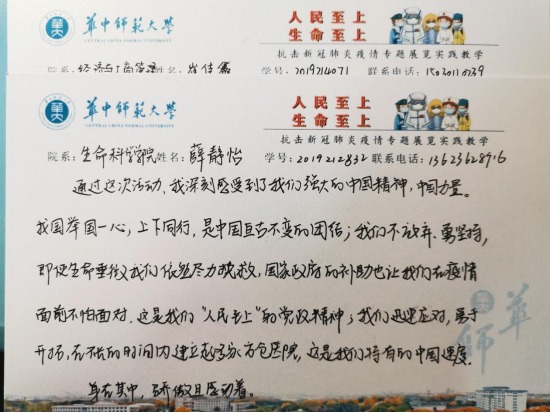 华中师范大学
CENTRAL CHINA NORMAL UNIVERSITY
人民至上
生命至上
抗击新冠肺炎疫情专题展览实践教学
院系: 姓名:
学号:2019214071 联系电话:
华中师范大学
CENTRAL CHINA NORMAL UNIVERSITY
人民至上
生命至上
抗击新冠肺炎疫情专题展览实践教学
院系:生命科学学院 姓名:薛静怡
学号:2019212832 联系电话:13623628916
通过这次活动,我深刻感受到了我们强大的中国精神,中国力量。
我国举国一心,上下同行,是中国亘古不变的团结;我们不放弃、勇坚持,
即使生命垂微我们依然尽力挽救,国家政府的补助也让我们在疫情
面前不怕面对.这是我们"人民至上"的党政精神;我们迅速应对,勇于
开拓,在不长的时间内建立起多家方仓医院,这是我们特有的中国速度.
身在其中,骄傲且感动着。
华
师